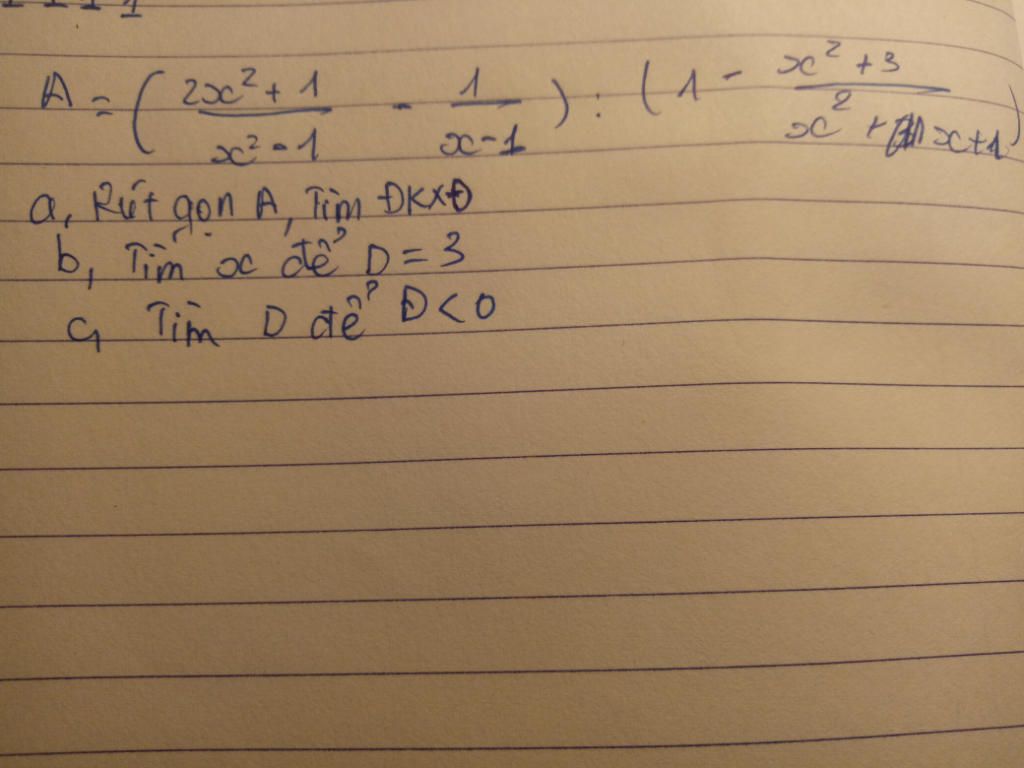 A = ( \frac{2x^2+1}{x^2-1} - \frac{1}{x-1} ) : ( 1 - \frac{x^2+3}{x^2+x+1} )
a, Rút gọn A, Tìm ĐKXĐ
b, Tìm x để D = 3
c, Tìm D để D < 0